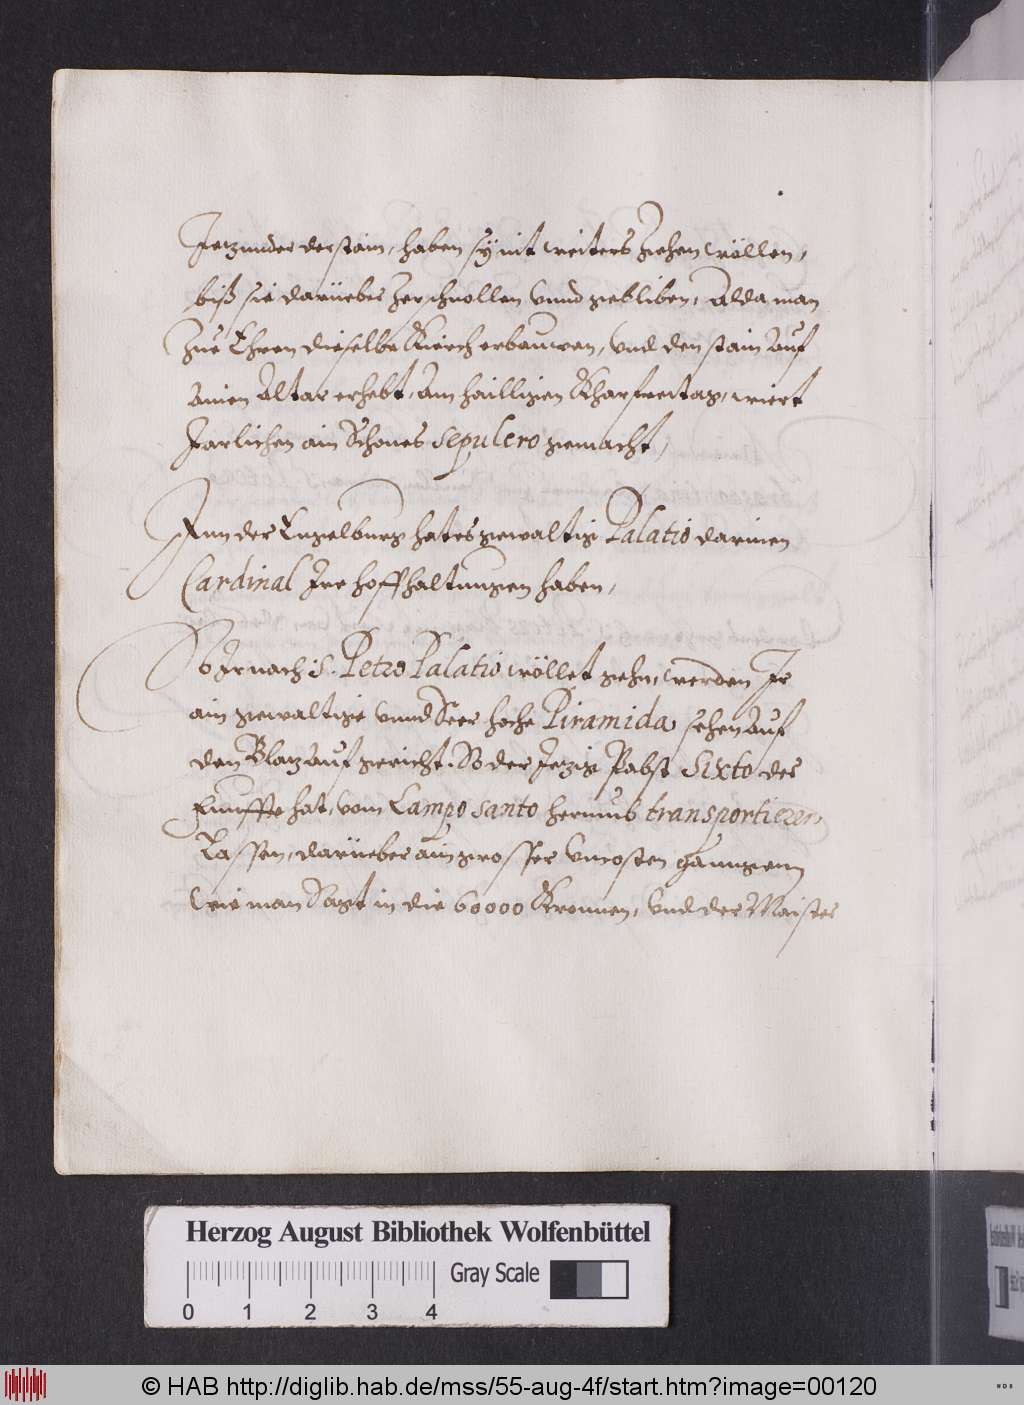 Jetzunder der stain, haben sÿ nit weiters ziehen wöllen,
biß sie darüeber zerschnollen vnnd gebliben, Alda man
Zue Ehren dieselbe Kierch erbauwen, vnd den stain Auf
ainen Altar erhebt, Am hailligen Kharfreitag, wiert
Jarlichen ain Schones Sepulcro gemacht,
Jnn der Engelburg hat es gewaltig Palatio darinen
Cardinal Jre hoffhaltungen haben,
So Jr nach S. Petro Palatio wöllet gehn, werden Jr
ain gewaltige vnnd Seer hoche Piramida sehen Auf
den Blatz auf gericht. So der Jetzig Pabst Sixto der
Funffte hat, vom Campo santo herumb transportieren
Lassen, darüeber ain grosser Vncosten ganngenn
Wie man Sagt in die 60000 Kronnen, Vnd der Maister
Herzog August Bibliothek Wolfenbüttel
0 1 2 3 4 Gray Scale
© HAB http://diglib.hab.de/mss/55-aug-4f/start.htm?image=00120